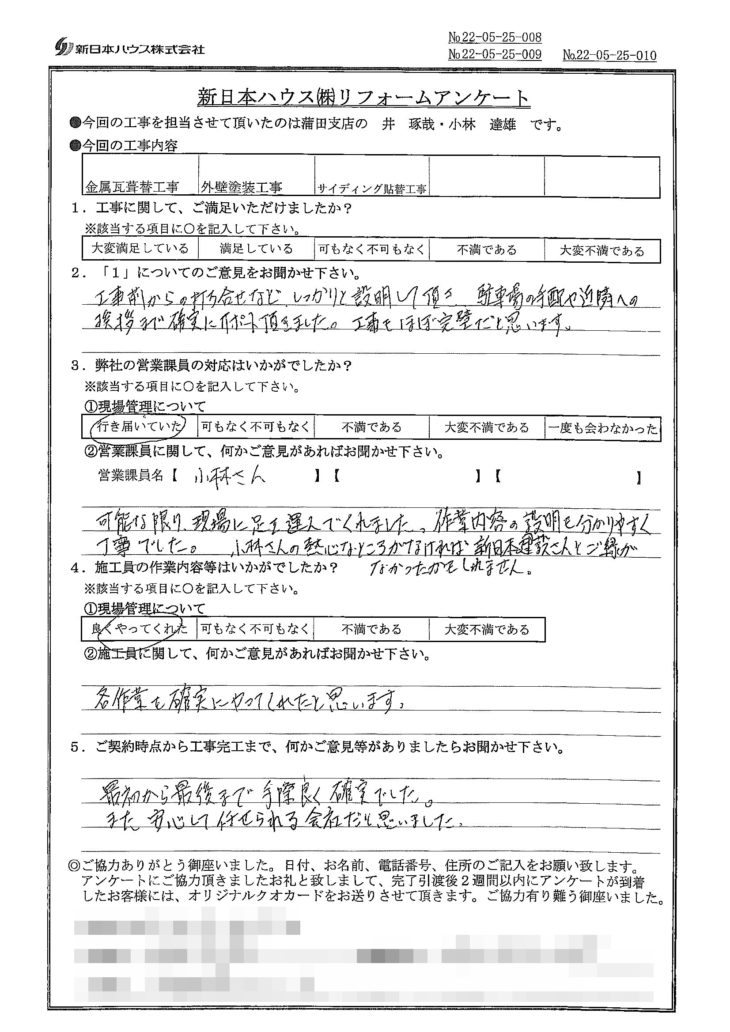 新日本ハウス株式会社
№22-05-25-008
№22-05-25-009 №22-05-25-010
新日本ハウス㈱リフォームアンケート
●今回の工事を担当させて頂いたのは蒲田支店の 井 琢哉・小林 達雄 です。
●今回の工事内容
金属瓦葺替工事 外壁塗装工事 サイディング貼替工事
1．工事に関して、ご満足いただけましたか？
※該当する項目に○を記入して下さい。
大変満足している 満足している 可もなく不可もなく 不満である 大変不満である
2．「1」についてのご意見をお聞かせ下さい。
工事前からの打ち合せなど、しっかりと説明して頂き、駐車場の手配や近隣への
挨拶まで確実にサポート頂きました。工事もほぼ完璧だと思います。
3．弊社の営業課員の対応はいかがでしたか？
※該当する項目に○を記入して下さい。
①現場管理について
行き届いていた 可もなく不可もなく 不満である 大変不満である 一度も会わなかった
②営業課員に関して、何かご意見があればお聞かせ下さい。
営業課員名【 小林さん 】【 】【 】
可能な限り、現場に足を運んでくれました。作業内容の説明も分かりやすく
丁寧でした。 小林さんの熱心なところがなければ新日本建設さんとご縁が
なかったかもしれません。
4．施工員の作業内容等はいかがでしたか？
※該当する項目に○を記入して下さい。
①現場管理について
良くやってくれた 可もなく不可もなく 不満である 大変不満である
②施工員に関して、何かご意見があればお聞かせ下さい。
各作業も確実にやってくれたと思います。
5．ご契約時点から工事完工まで、何かご意見等がありましたらお聞かせ下さい。
最初から最後まで手際良く確実でした。
また、安心して任せられる会社だと思いました。
◎ご協力ありがとう御座いました。日付、お名前、電話番号、住所のご記入をお願い致します。
アンケートにご協力頂きましたお礼と致しまして、完了引渡後2週間以内にアンケートが到着
したお客様には、オリジナルクオカードをお送りさせて頂きます。ご協力有り難う御座いました。